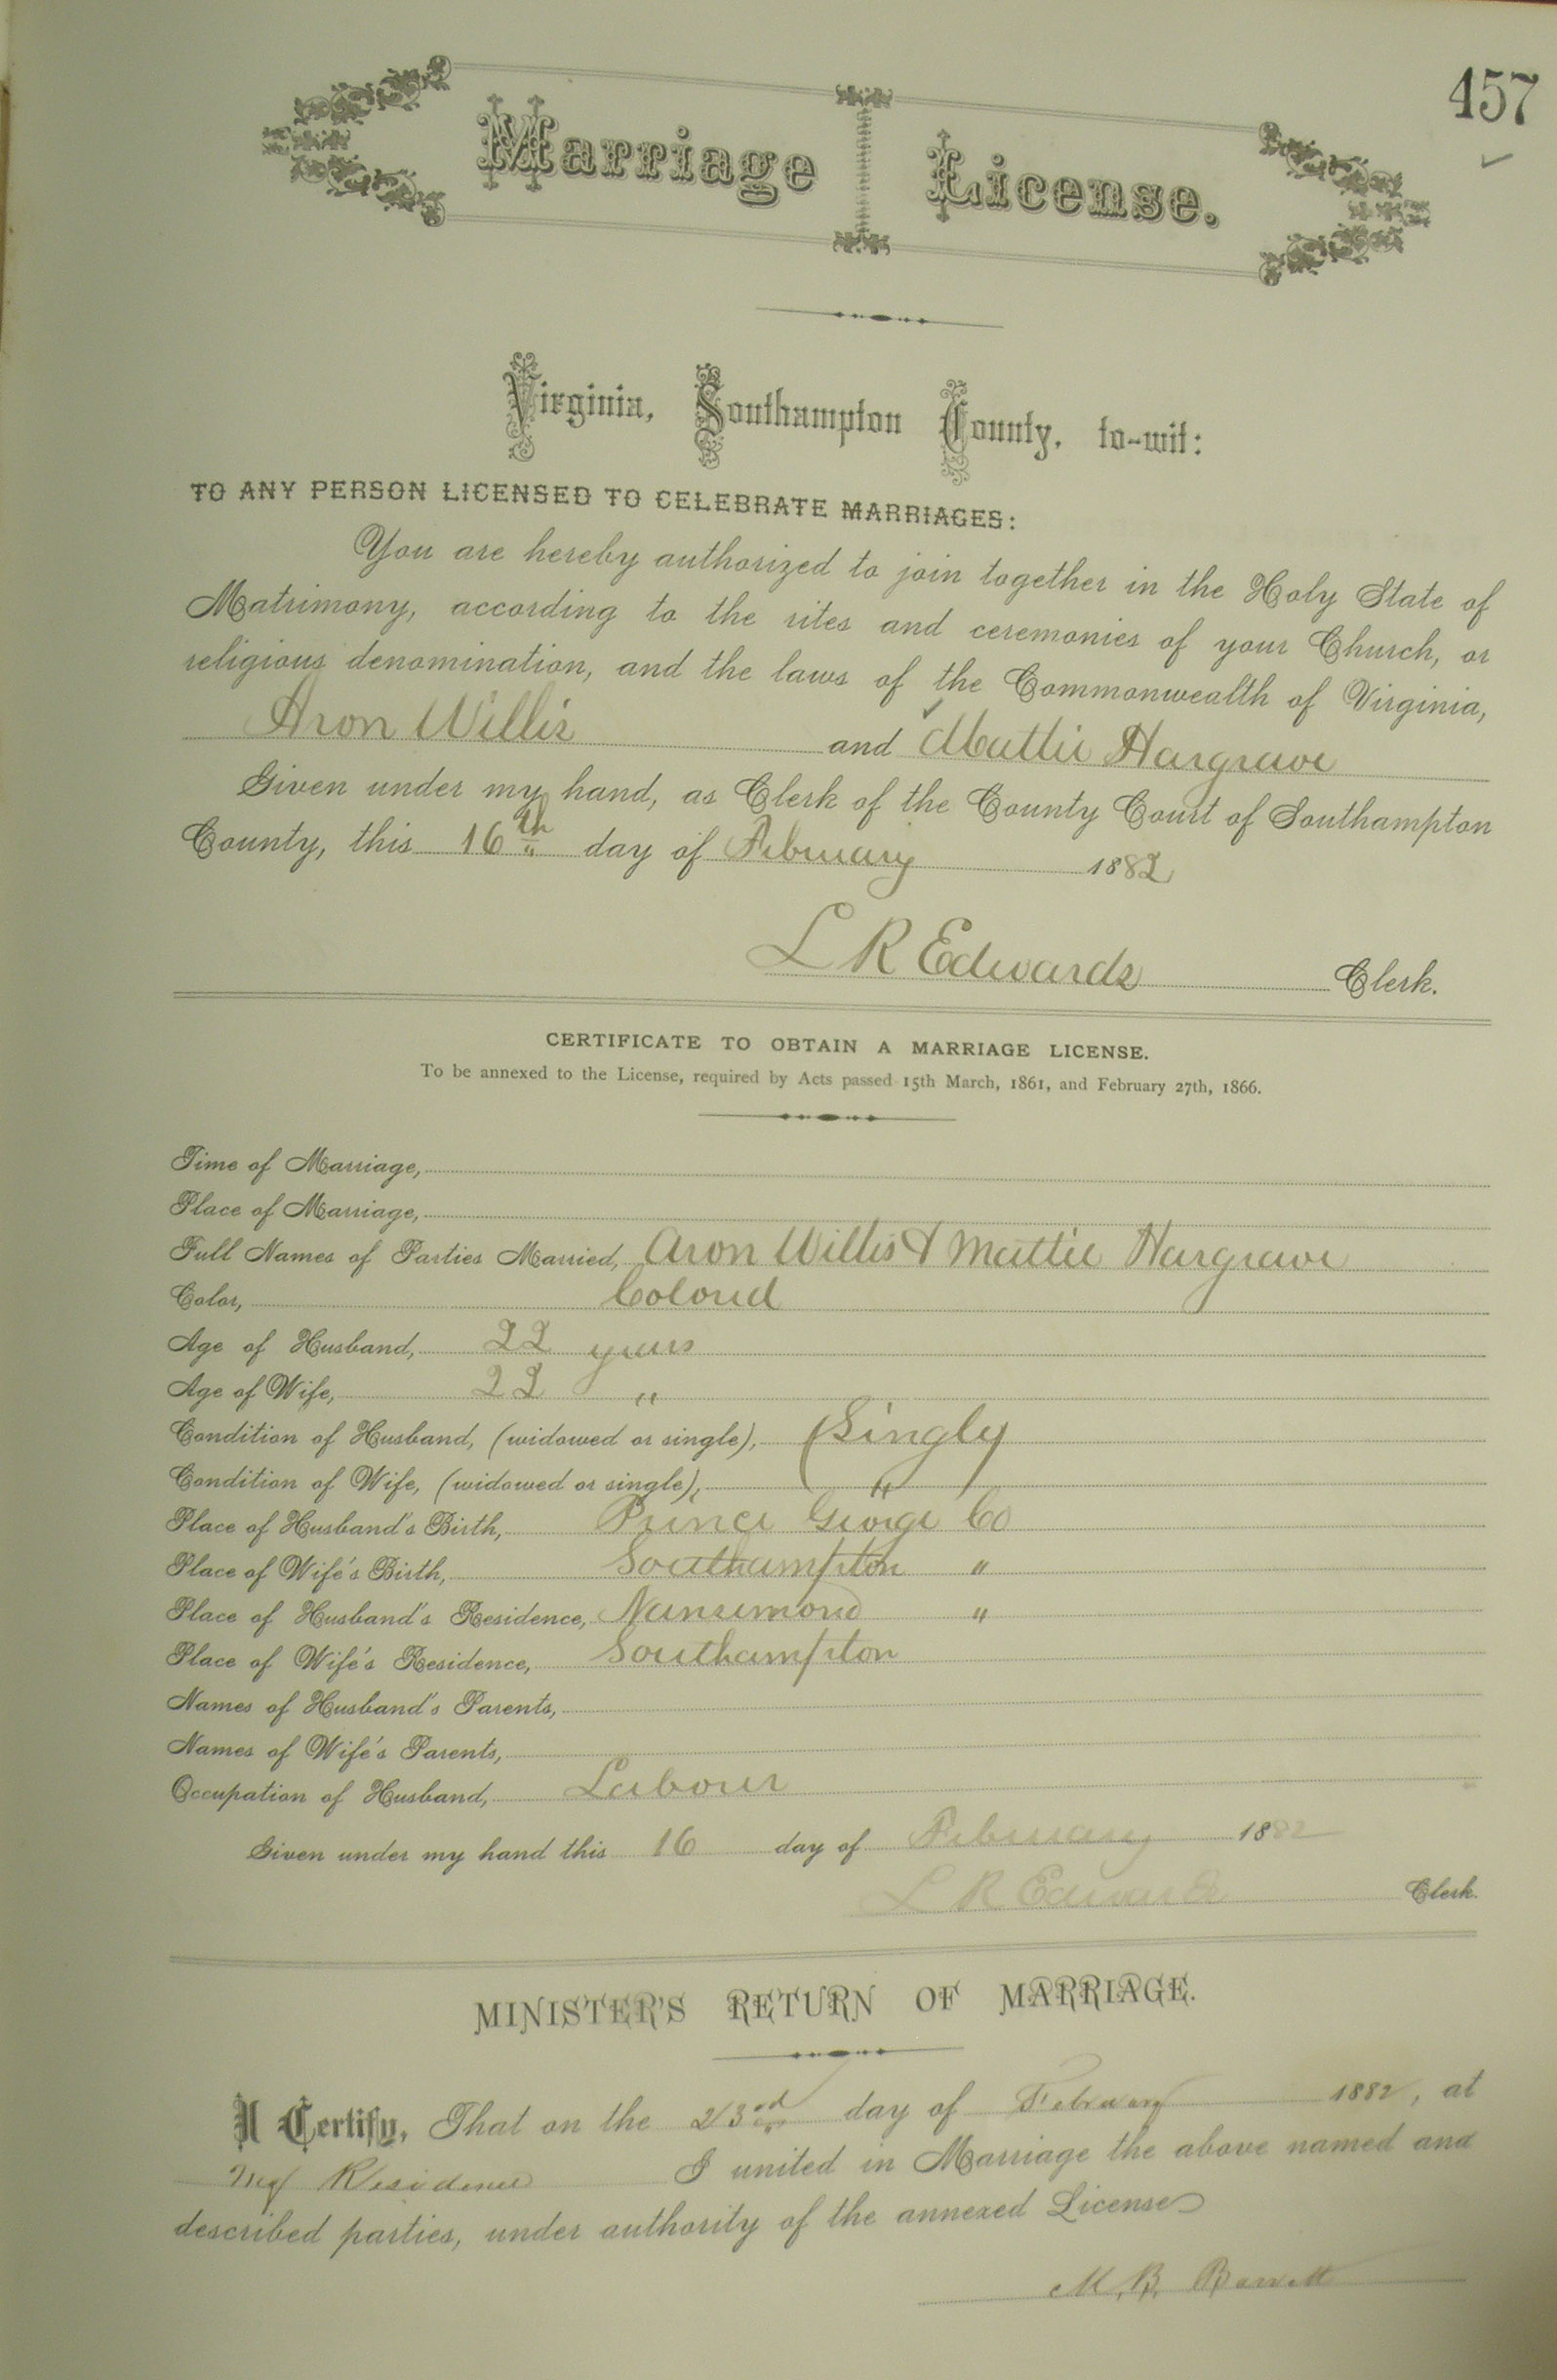 457
Marriage License.
Virginia, Southampton County, to-wit:
TO ANY PERSON LICENSED TO CELEBRATE MARRIAGES:
You are hereby authorized to join together in the Holy State of
Matrimony, according to the rites and ceremonies of your Church, or
religious denomination, and the laws of the Commonwealth of Virginia,
Aron Willis and Mattie Hargrave
Given under my hand, as Clerk of the County Court of Southampton
County, this 16th day of February 1882
L R Edwards Clerk.
CERTIFICATE TO OBTAIN A MARRIAGE LICENSE.
To be annexed to the License, required by Acts passed 15th March, 1861, and February 27th, 1866.
Time of Marriage,
Place of Marriage,
Full Names of Parties Married, Aron Willis & Mattie Hargrave
Color, Colored
Age of Husband, 22 years
Age of Wife, 22 "
Condition of Husband, (widowed or single), (Singly
Condition of Wife, (widowed or single), "
Place of Husband's Birth, Prince George Co
Place of Wife's Birth, Southampton "
Place of Husband's Residence, Nansemond "
Place of Wife's Residence, Southampton
Names of Husband's Parents,
Names of Wife's Parents,
Occupation of Husband, Labour
Given under my hand this 16 day of February 1882
L R Edwards Clerk.
MINISTER'S RETURN OF MARRIAGE.
I Certify, That on the 23rd day of February 1882, at
my Residence I united in Marriage the above named and
described parties, under authority of the annexed License
M. B.